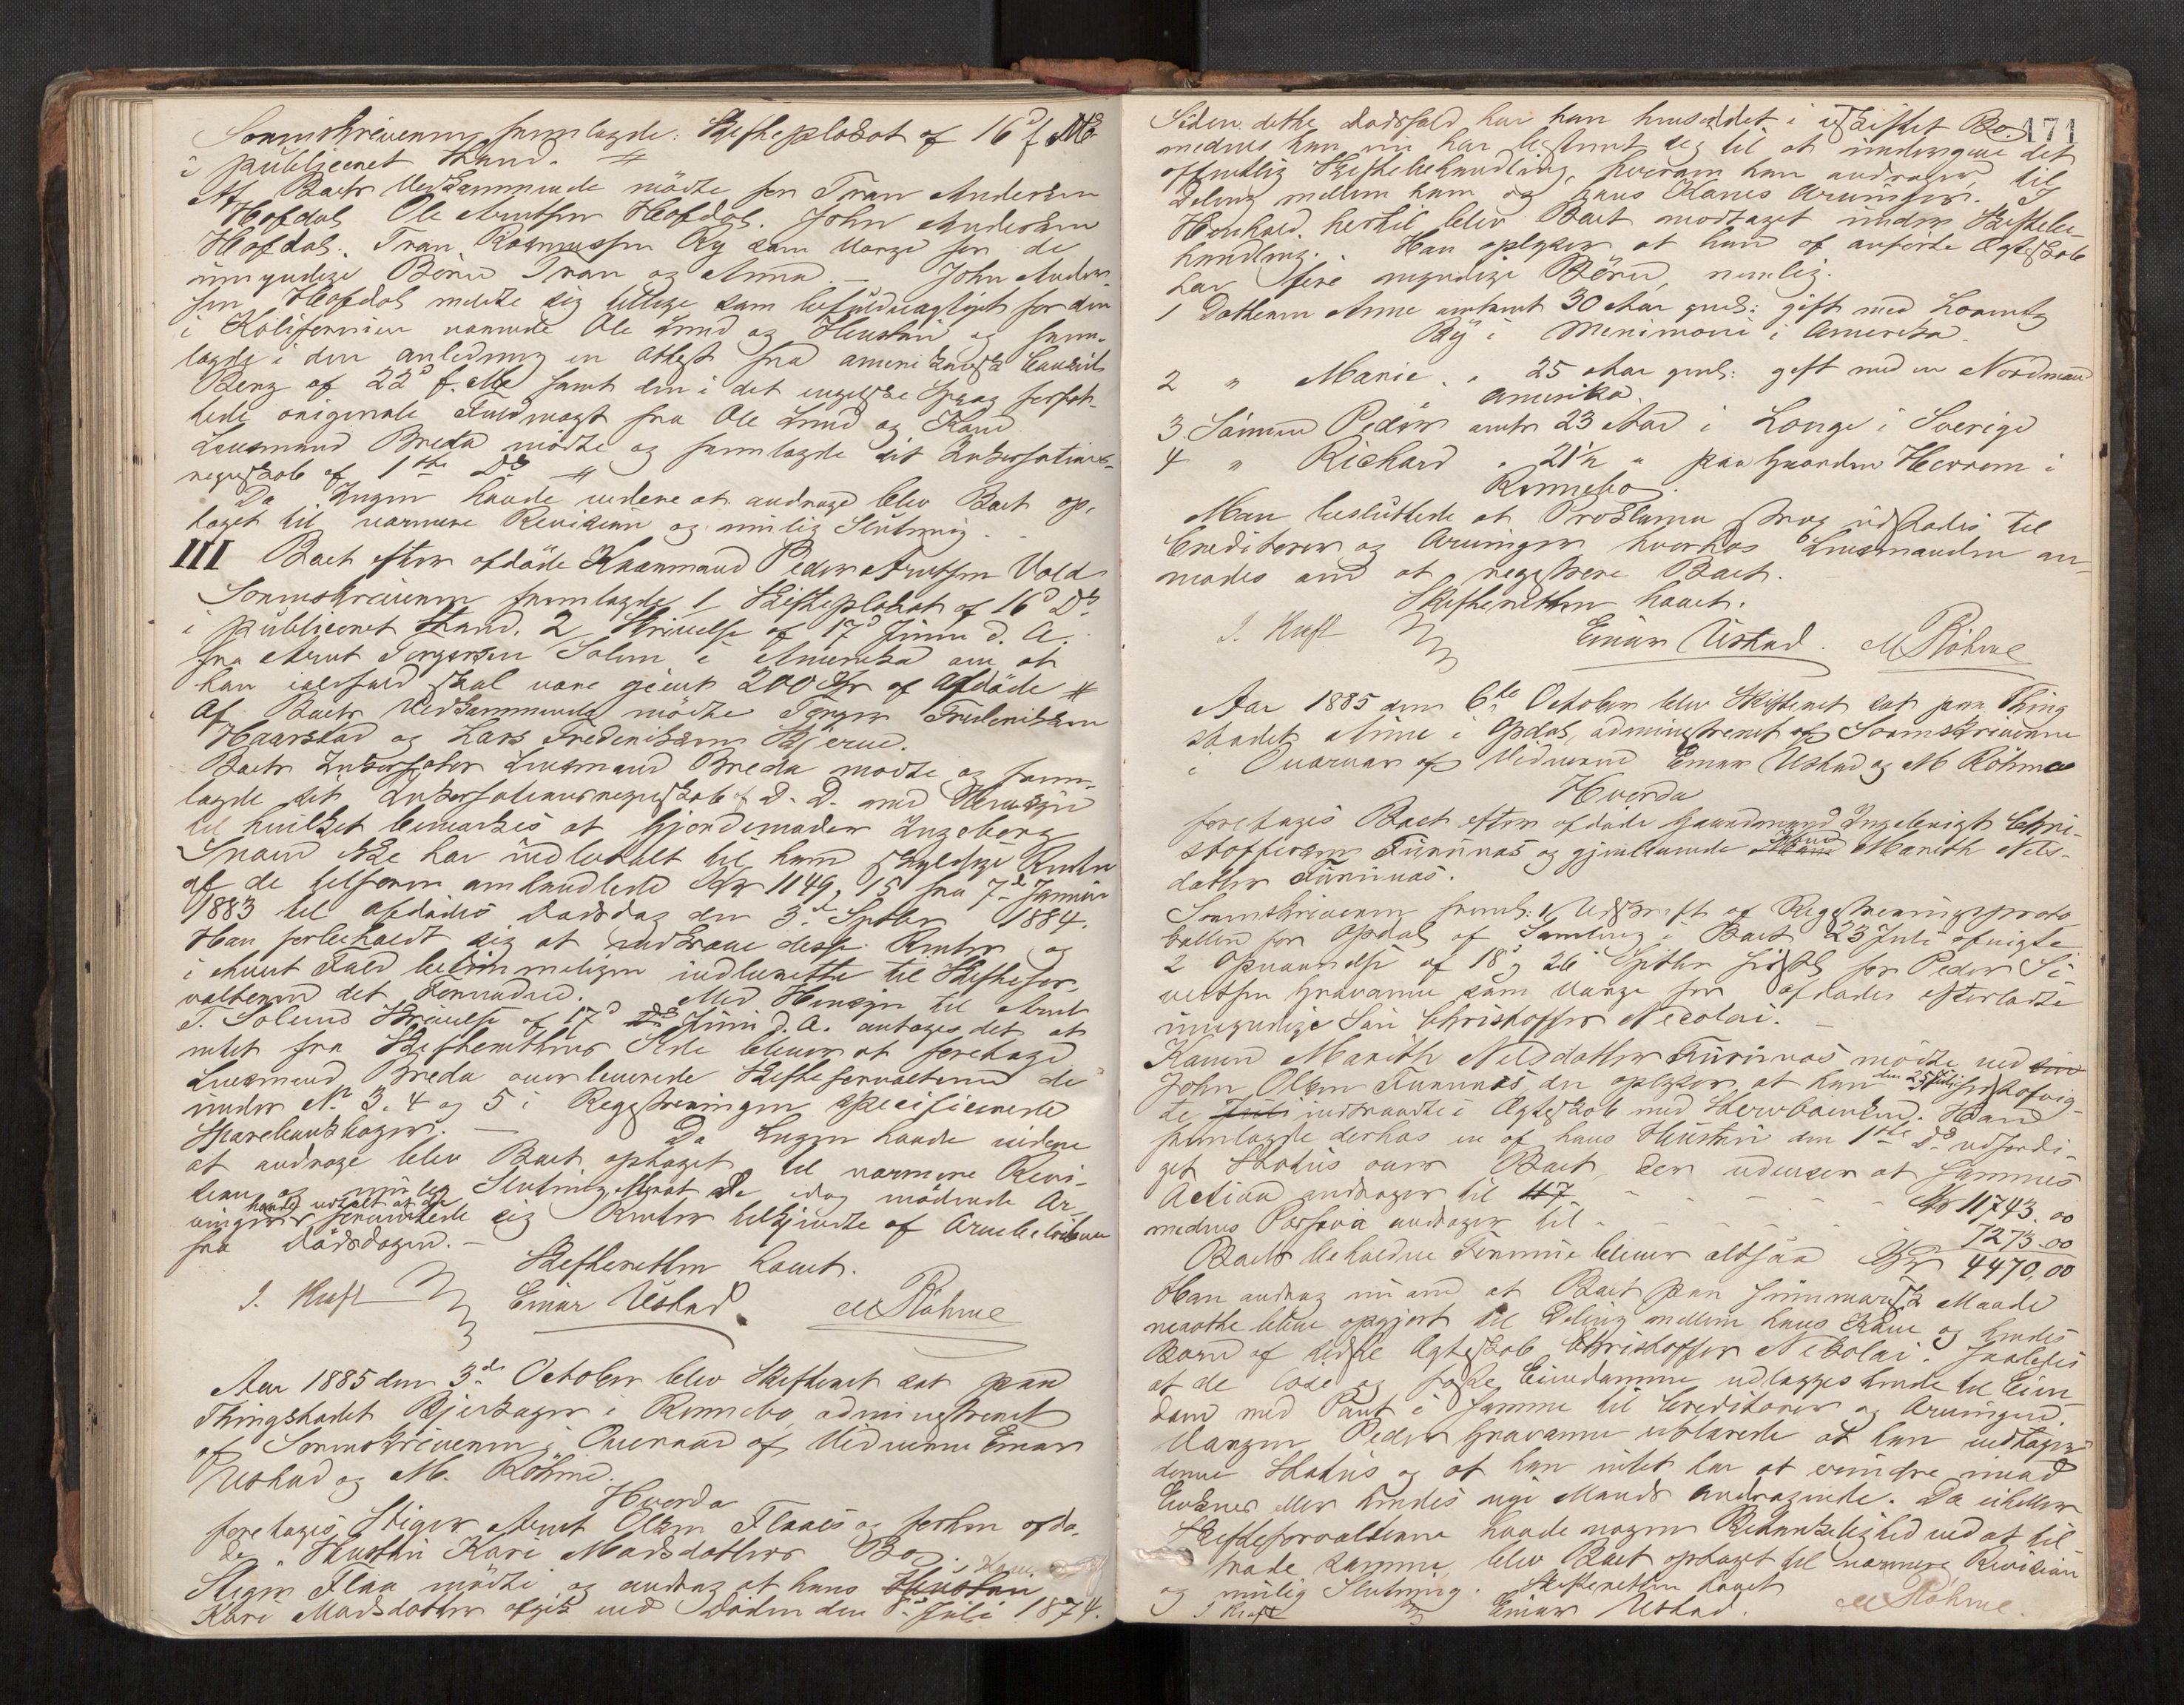 Sorenskriveren fremlagde: Skifteplakat af 16d f. Md
i publiceret Stand.
Af Boets Vedkommende mödte for Tran Andersen
Hofdal, Ole Arntsen Hofdal. John Andersen
Hofdal. Tran Rasmussen Ry som Verge for de
umyndige Börn Tran og Anna. — John Ander-
sen Hofdal meldte sig tillige som befuldmægtiget for den
i Kalifornien værende Ole Lund og Hustru og frem-
lagde i den anledning en Attest fra amerikansk Consul
Berg af 22d f. Md samt den i det engelske Sprog forfat-
tede originale Fuldmagt fra Ole Lund og Kone.
Lensmand Breda mödte og fremlagde sit Inkassations-
regnskab af 1ste Ds
Da Ingen havde videre at andrage blev Boet op-
taget til nærmere Revision og mulig Slutning.
III Boet efter afdöde Kaarmand Peder Arntsen Vold
Sorenskriveren fremlagde 1, Skifteplakat af 16d Ds
i publiceret Stand. 2, Skrivelse af 17d Juni d. A.
fra Arnt Torgersen Solem i Amerika om at
han ialfald skal være givet 200 Kr af Afdöde
Af Boets Vedkommende mödte Torger Frederiksen
Haarstad og Lars Frederiksen Bjerke.
Boets Inkassator Lensmand Breda mödte og frem-
lagde sit Inkassationsregnskab af D. D. med Hensyn
til hvilket bemærkes at Gjordemoder Ingeborg
Snoen ikke har indbetalt til ham skyldige Renter
af de tilforn omhandlede Kr 1149,15 fra 7de Januar
1883 til Afdödes Dödsdag den 3de Septbr 1884.
Han forbeholdt sig at indkræve disse Renter og
i Fald betimeligen indberette til Skiftefor-
valteren det Fornödne. Med Hensyn til Arnt
T. Solems Skrivelse af 17d Ds Juni d. A. antages det at
intet fra Skifterettens Side bliver at foretage
Lensmand Breda overleverede Skifteforvalteren de
under No 3. 4 og 5 i Registreringen specificerede
Sparebankböger. — Da Ingen havde videre
at andrage blev Boet optaget til nærmere Revi-
sion og mulig Slutning, de idag mödende Ar-
vinger
fra Dödsdagen. —
Skifteretten hævet.
J. Kraft Einar Ustad. M Röhme
Aar 1885 den 3de October blev Skifteret sat paa
Thingstedet Bjerkager i Rennebo, administreret
af Sorenskriveren i Overvær af Vidnerne Einar
Ustad og M. Röhme.
Hvorda
foretages Stiger Arnt Olsen Flaaes og forhen afdö-
de Hustru Kari Madsdatters Bo.
Stiger Flaa mödte og androg at hans Hustru Kone
Kari Madsdatter afgik ved Döden den Juli 1874.
Siden dette dödsfald har han hensiddet i uskiftet Bo 171
medens han nu har bestemt sig til at undergive det
offentlig Skiftebehandling, hvorom han andrager, til
Deling mellem ham og hans Kones Arvinger. I
Henhold hertil blev Boet modtaget under Skiftebe-
handling. Han oplyser at han af anförte Ægteskab
har fire myndige Börn, nemlig.
1 Datteren Anne omtrent 30 Aar gml: gift med Lorentz
By i Menimoni i Amerika.
2 " Marie, " 25 Aar gml: gift med en Nordmand
Amerika.
3 Sönnen Peder omtr 23 Aar i Longe i Sverige
4 " Richard " 21½ " paa Gaarden Herrem i
Rennebo.
Man besluttede at Proklama strax udstædes til
Creditorer og Arvinger hvorhos Lensmanden an-
modes om at registrere Boet.
Skifteretten hævet.
J. Kraft Einar Ustad. M Röhme
Aar 1885 den 6te October blev Skifteret sat paa Thing
stedet Aune i Opdal, administreret af Sorenskriveren
i Overvær af Vidnerne Einar Ustad og M Röhme
Hvorda
foretages Boet efter afdöde Gaardmand Ingebrigt Chri-
stoffersen Furunæs og gjenlevende Marith Nels-
datter Furunæs.
Sorenskriveren freml: 1, Udskrift af Registreringsproto
kollen for Opdal af Samling i Boet 23 Juli afvigte
2 Opnævnelse af 18d og 26 Septbr sidstl for Peder Si
vertsen Gravaune som Verge for Afdödes efterladte
umyndige Sön Christoffer Nicolai. —
Konen Marith Nelsdatter Furunæs mödte ved sin
John Olsen Furunæs, der oplyser at han den 25 Juli sidstafvig-
te Juli indtraadte i Ægteskab med Stervboenken. Han
fremlagde derhos en af hans Hustru den 1ste Ds udfærdi-
get Status over Boet, der udviser at Sammes
Activa andrager til 117 - - - - - - Kr 11743.00
medens Passiva andrager til - - - - - - 7273.00
Boets beholdne Formue bliver altsaa Kr 4470,00
Han androg nu om at Boet paa summarisk Maade
maatte blive opgjort til Deling mellem hans Kone og hendes
Barn af sidste Ægteskab Christoffer Nikolai, saaledes
at de löse og faste Eiendomme udlægges hende til Eien
dom med Pant i samme til Creditorer og Arvingen.
Vergen Peder Gravaune erklærede at han vedtager
denne Status og at han intet har at erindre imod
Enkens eller hendes nye Mands Andragende. Da eiheller
Skifteforvalteren havde nogen Betænkelighed ved at til
træde samme, blev Boet optaget til nærmere Revision
og mulig Slutning. Skifteretten hævet
J Kraft Einar Ustad. M Röhme.